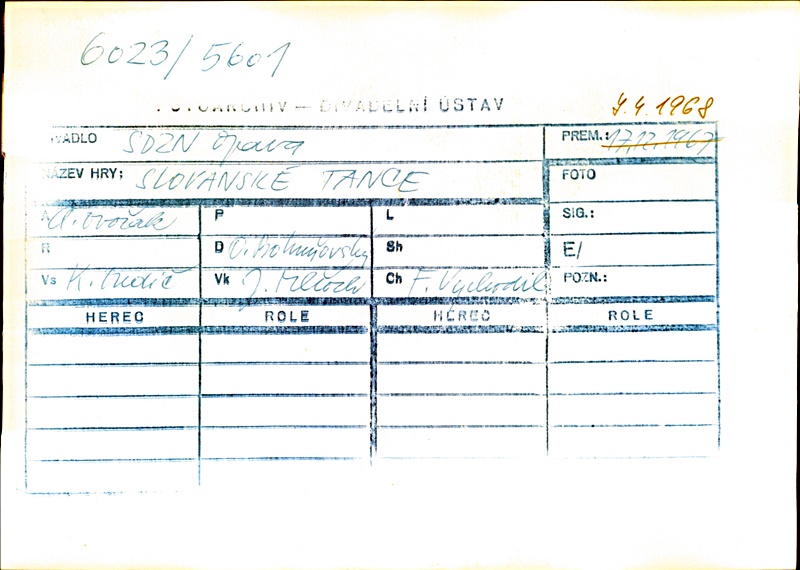 6023/5601
FOTOARCHIV — DIVADELNÍ ÚSTAV 7.4.1968
DIVADLO SDZN Opava PREM.: 17.12.1967
NÁZEV HRY: SLOVANSKÉ TANCE FOTO
A A. Dvořák P L SIG.:
R D O. Bohuňovský Sh E/
Vs K. Vk J. Ch F. Vychodil POZN.:
HEREC ROLE HEREC ROLE